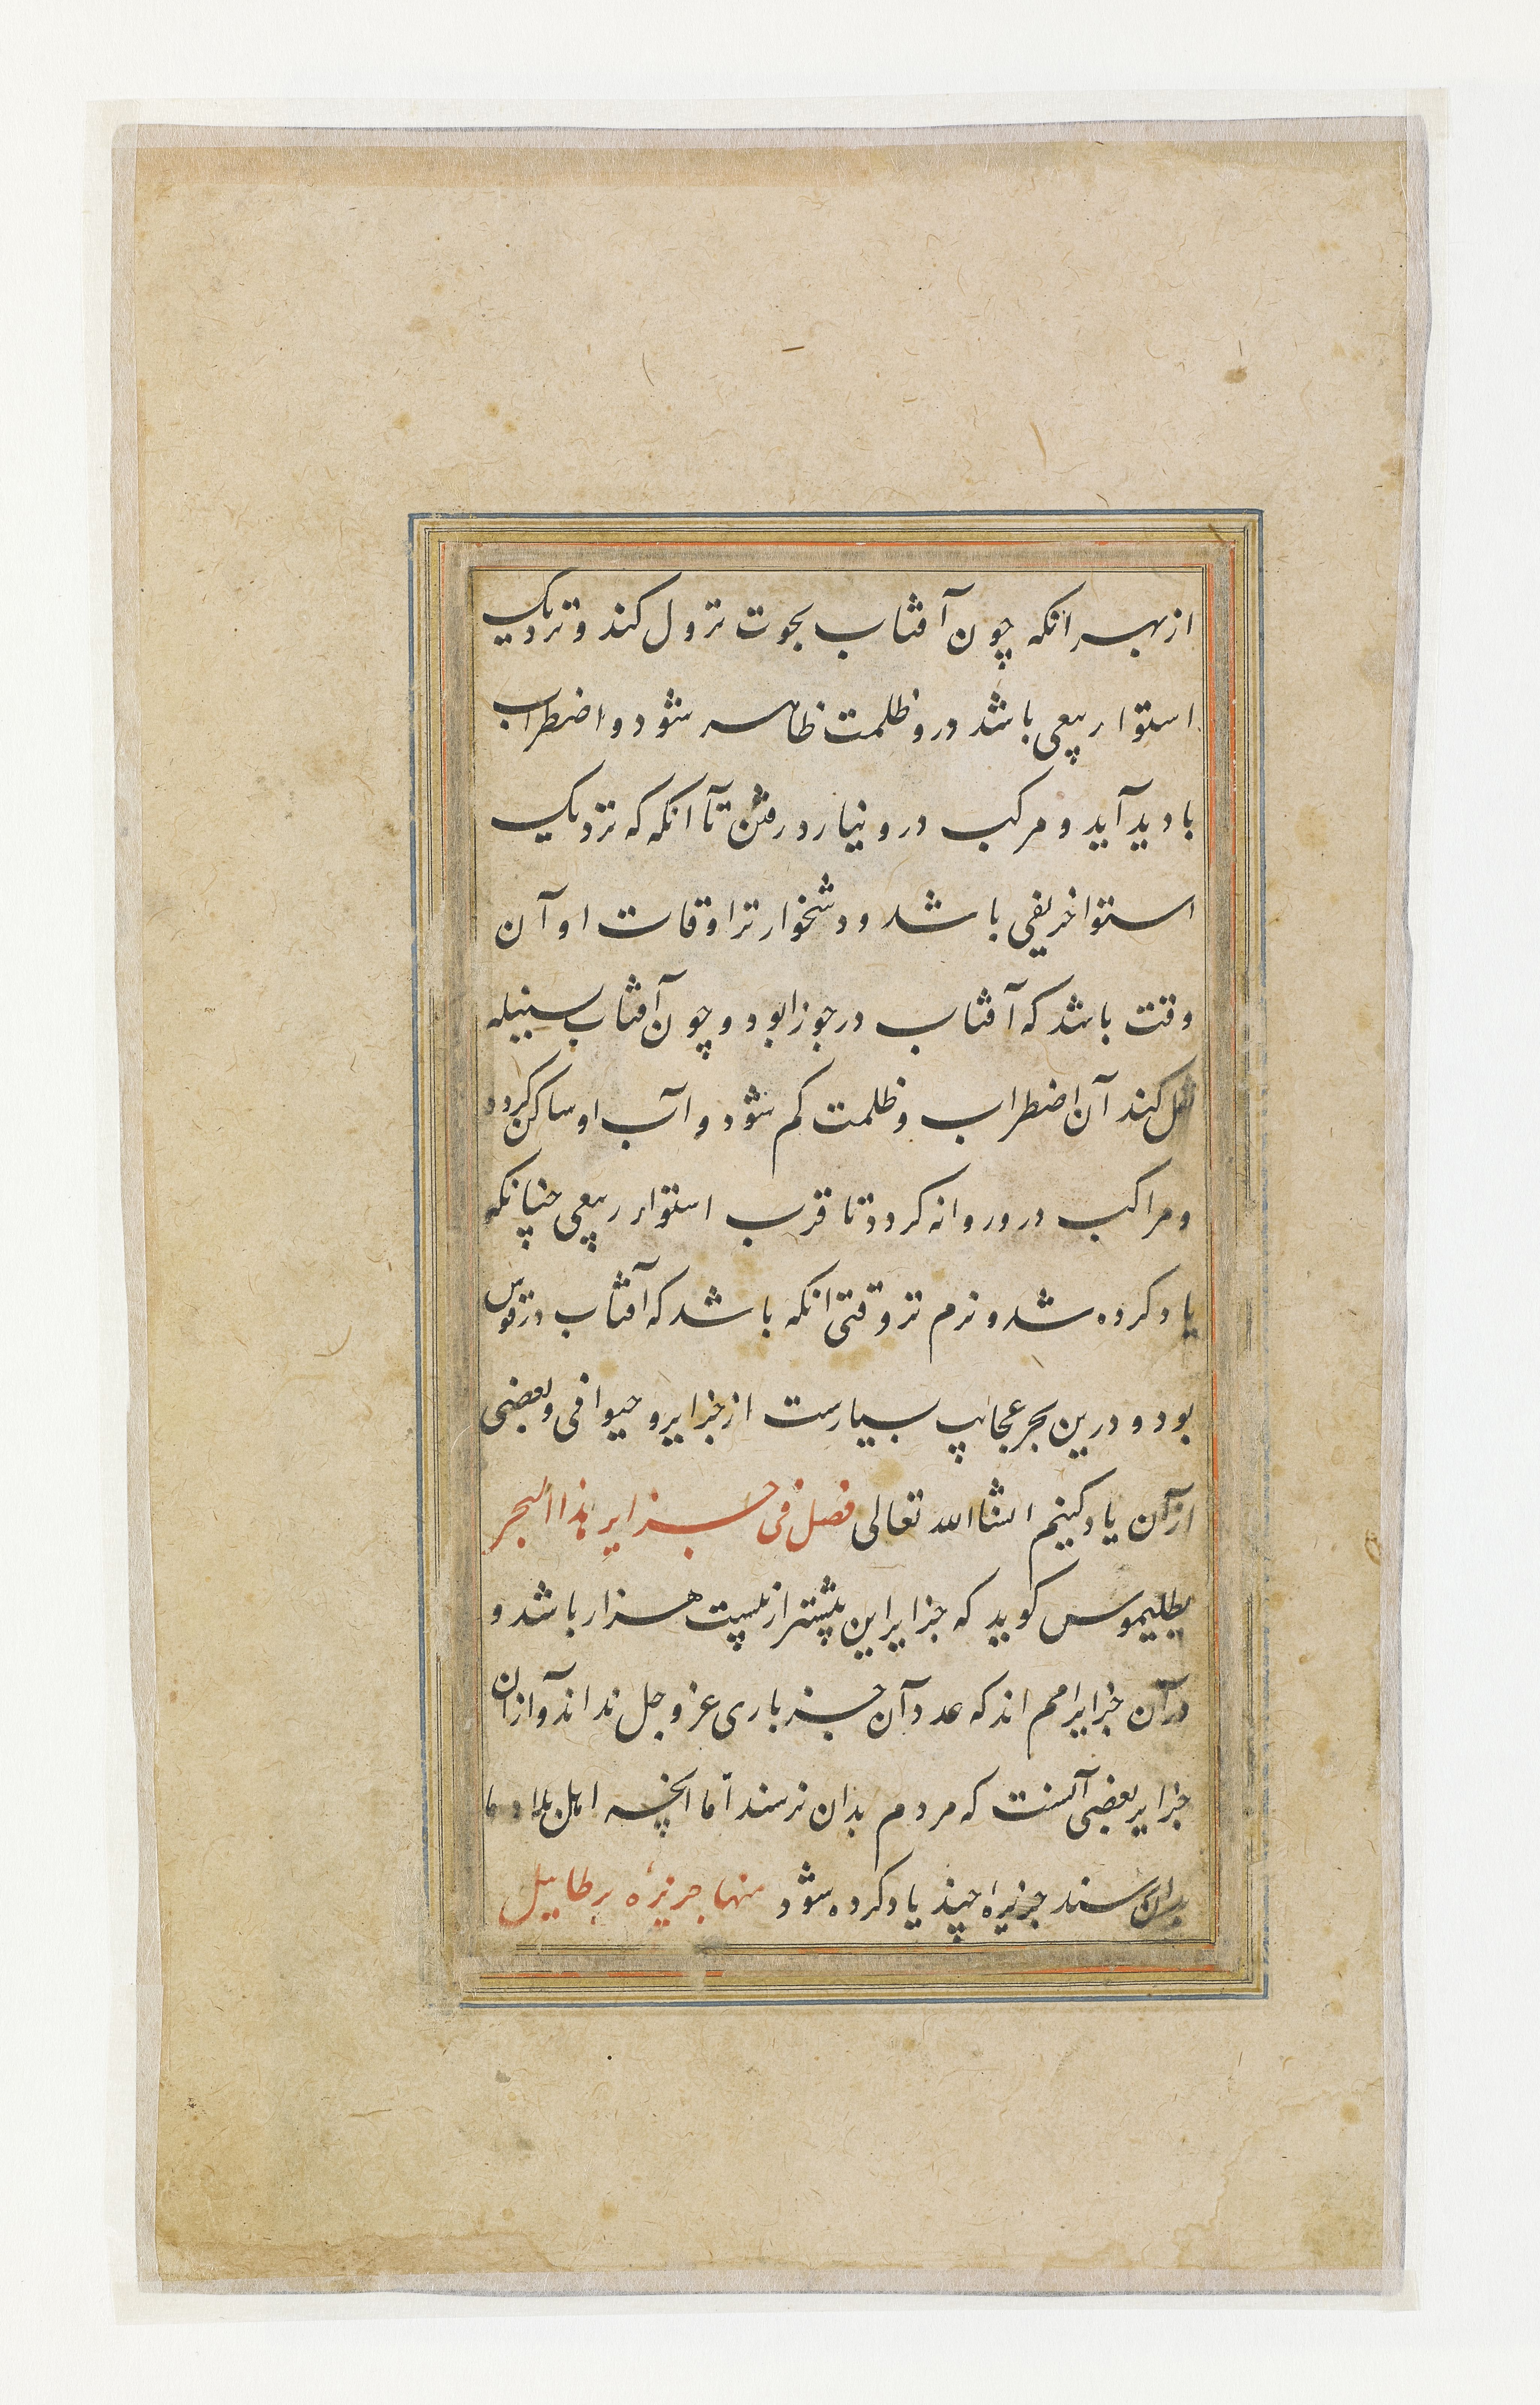 از بهر انکه چون آفتاب بحوت نزول کند و نزدیک
استوا ربیعی باشد درو ظلمت ظاهر شود و اضطراب
بادید آید و مرکب درو نیارد رفتن تا آنکه که نزدیک
استوا خریفی باشد و دشخوارتر اوقات او آن
وقت باشد که آفتاب در جوزا بود و چون آفتاب بسنبله
کند آن اضطراب و ظلمت کم شود و آب او ساکن کردد
و مراکب درو روانه کردد تا قرب استواء ربیعی چنانکه
یاد کرده شد و نرم تر وقتی انکه باشد که آفتاب در قوس
بود و درین بحر عجایب بسیارست از جزایر و حیوانی و بعضی
از آن یاد کنیم انشاالله تعالی فصل فی جزایر هذا البحر
بطلیموس کوید که جزایر این بیشتر از بیست هزار باشد و
در آن جزایر امم اند که عدد آن جز باری عز و جل نداند و از آن
جزایر بعضی آنست که مردم بدان نرسند اما آنچه اهل بلاد ما
بدان رسند جزیرۀ چند یاد کرده شود منها جزیرۀ برطاییل